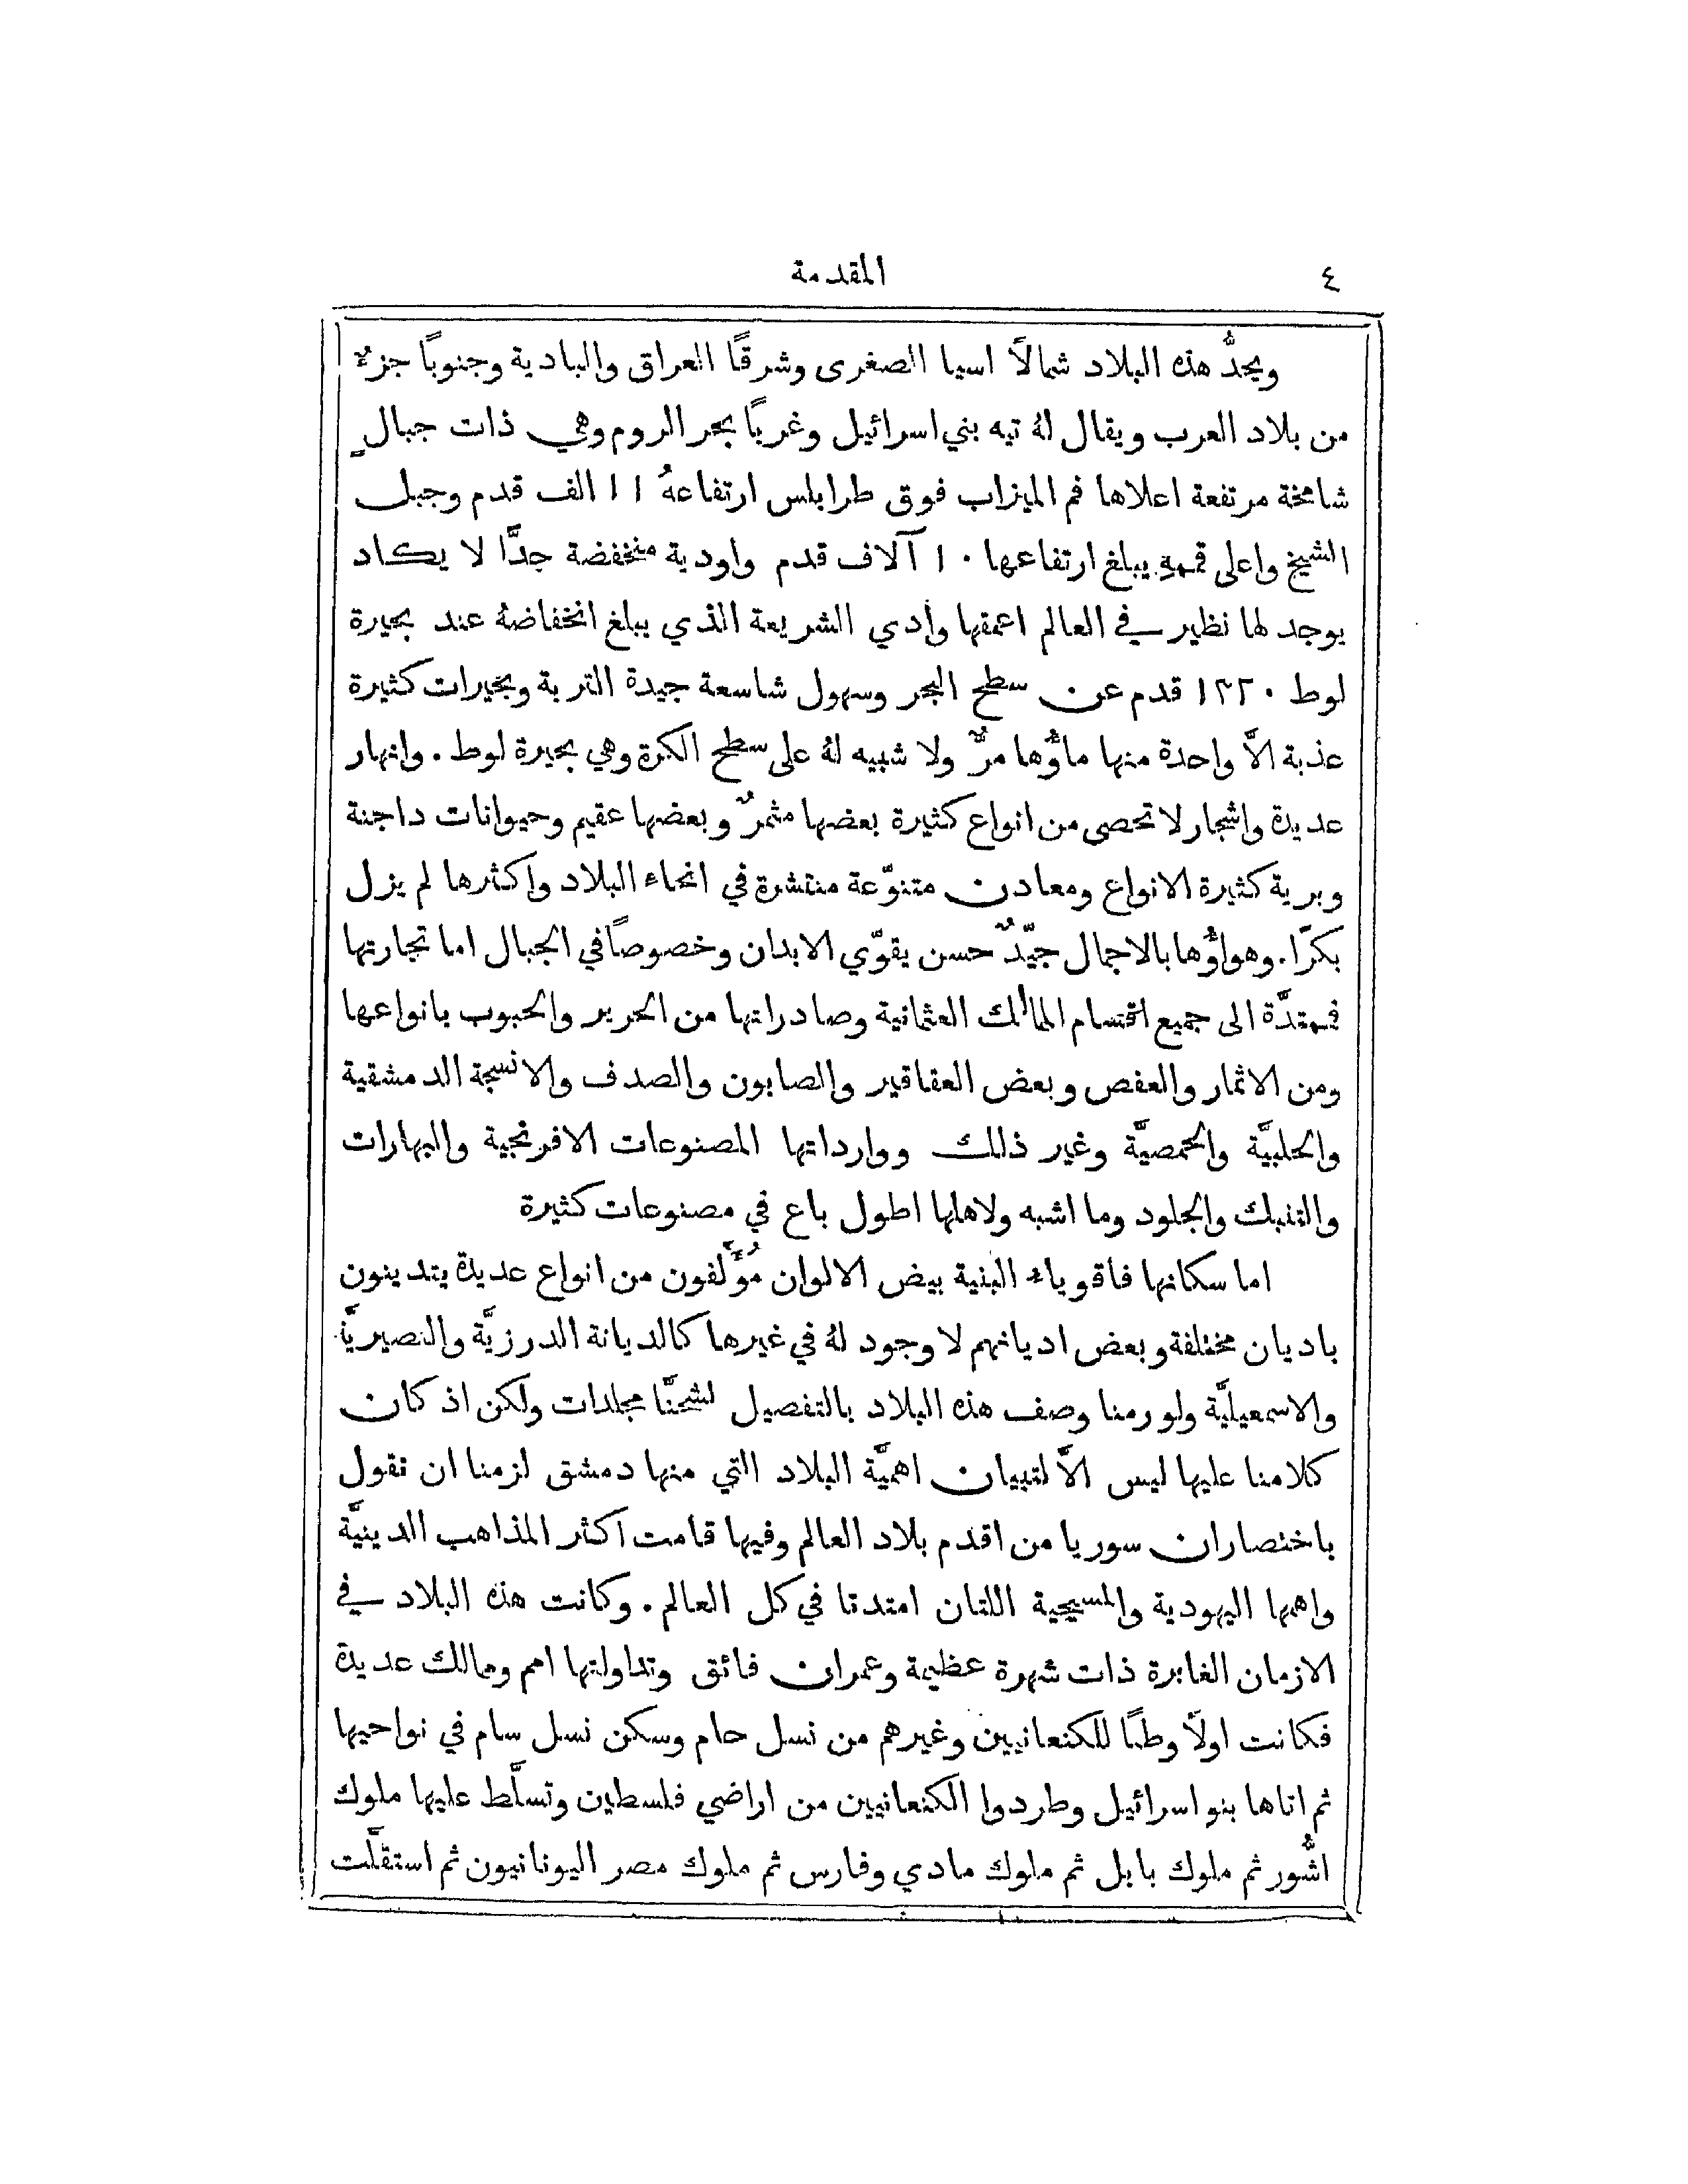 ٤
المقدمة
ويحدُّ هذه البلاد شمالاً اسيا الصغرى وشرقًا العراق والبادية وجنوبًا جزءٌ
من بلاد العرب ويقال لهُ تيه بني اسرائيل وغربًا بحر الروم وهي ذات جبالٍ
شامخة مرتفعة اعلاها فم الميزاب فوق طرابلس ارتفاعهُ ١١ الف قدم وجبل
الشيخ واعلى قممهِ يبلغ ارتفاعها ١٠ آلاف قدم واودية منخفضة جدًّا لا يكاد
يوجد لها نظير في العالم اعمقها وادي الشريعة الذي يبلغ انخفاضهُ عند بحيرة
لوط ١٢٢٠ قدم عن سطح البحر وسهول شاسعة جيدة التربة وبحيرات كثيرة
عذبة الاَّ واحدة منها ماؤُها مرٌّ ولا شبيه لهُ على سطح الكرة وهي بحيرة لوط . وانهار
عديدة واشجار لا تحصى من انواع كثيرة بعضها مثمرٌ وبعضها عقيم وحيوانات داجنة
وبرية كثيرة الانواع ومعادن متنوّعة منتشرة في انحاء البلاد واكثرها لم يزل
بكرًا . وهواؤُها بالاجمال جيّدٌ حسن يقوّي الابدان وخصوصًا في الجبال اما تجارتها
فممتدَّة الى جميع اقسام الممالك العثمانية وصادراتها من الحرير والحبوب بانواعها
ومن الاثمار والعفص وبعض العقاقير والصابون والصدف والانسجة الدمشقية
والحلبيَّة والحمصيَّة وغير ذلك ووارداتها المصنوعات الافرنجية والبهارات
والتنبك والجلود وما اشبه ولاهلها اطول باع في مصنوعات كثيرة
اما سكانها فاقوياء البنية بيض الالوان مُؤَلَّفون من انواع عديدة يتدينون
باديان مختلفة وبعض اديانهم لا وجود لهُ في غيرها كالديانة الدرزيَّة والنصيريَّة
والاسمعيليَّة ولو رمنا وصف هذه البلاد بالتفصيل لشحنَّا مجلدات ولكن اذ كان
كلامنا عليها ليس الاَّ لتبيان اهميَّة البلاد التي منها دمشق لزمنا ان نقول
باختصار ان سوريا من اقدم بلاد العالم وفيها قامت اكثر المذاهب الدينيَّة
واهمها اليهودية والمسيحية اللتان امتدتا في كل العالم . وكانت هذه البلاد في
الازمان الغابرة ذات شهرة عظيمة وعمران فائق وتداولتها امم وممالك عديدة
فكانت اولاً وطنًا للكنعانيين وغيرهم من نسل حام وسكن نسل سام في نواحيها
ثم اتاها بنو اسرائيل وطردوا الكنعانيين من اراضي فلسطين وتسلَّط عليها ملوك
اشُّور ثم ملوك بابل ثم ملوك مادي وفارس ثم ملوك مصر اليونانيون ثم استقلَّت